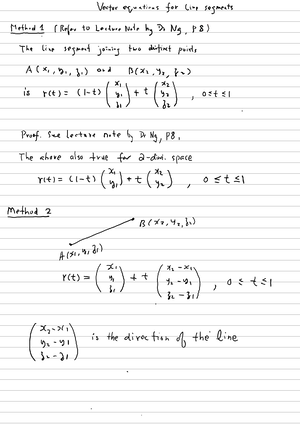 Vector equations for line segments
Method 1 (Refer to Lecture Note by Dr Ng, P8)
The line segment joining two distinct points
A (x₁, y₁, z₁) and B(x₂, y₂, z₂)
is r(t) = (1-t) (x₁ y₁ z₁) + t (x₂ y₂ z₂), 0≤t≤1
Proof. See lecture note by Dr Ng, P8.
The above also true for 2-dim. space
r(t) = (1-t) (x₁ y₁) + t (x₂ y₂), 0 ≤ t ≤ 1
Method 2
B (x₂, y₂, z₂)
A (x₁, y₁, z₁)
r(t) = (x₁ y₁ z₁) + t (x₂ - x₁ y₂ - y₁ z₂ - z₁), 0 ≤ t ≤ 1
(x₂ - x₁ y₂ - y₁ z₂ - z₁) is the direction of the line